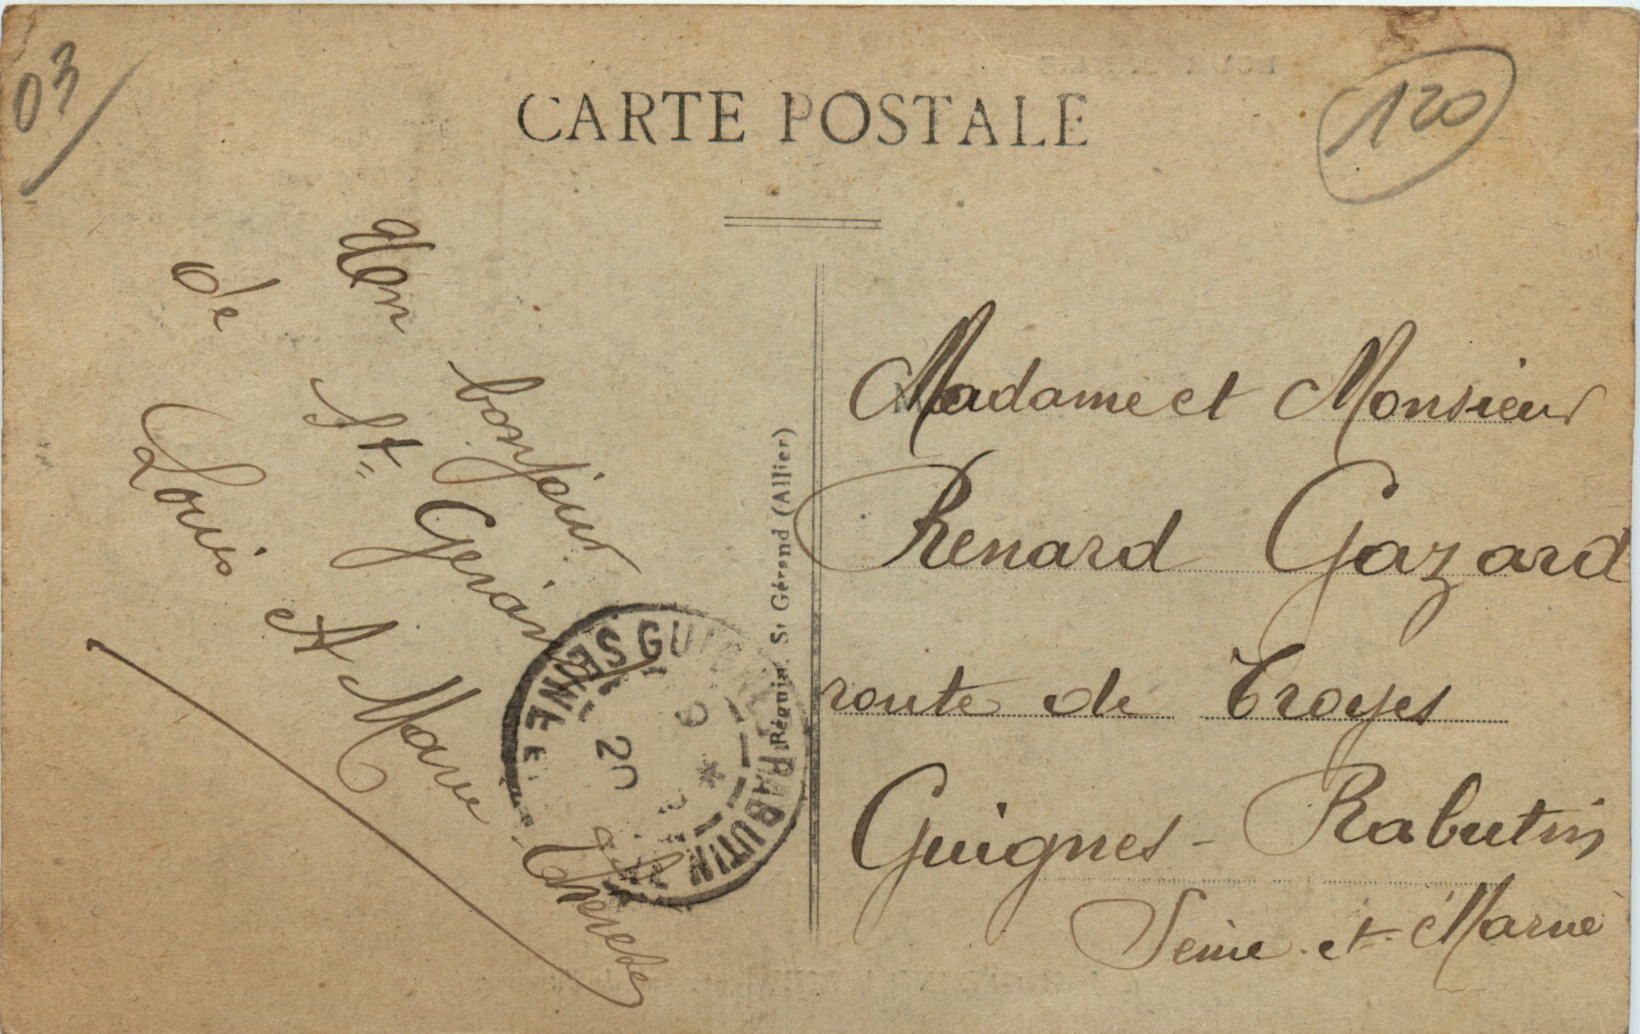 03
CARTE POSTALE
120
Un bonjour
de St Gerand
Louis et Marie
Therese
Réguin, St Gérend (Allier)
GUIGNES-RABUTIN
SEINE
20
Madame et Monsieur
Renard Gazard
route de Troyes
Guignes - Rabutin
Seine et Marne